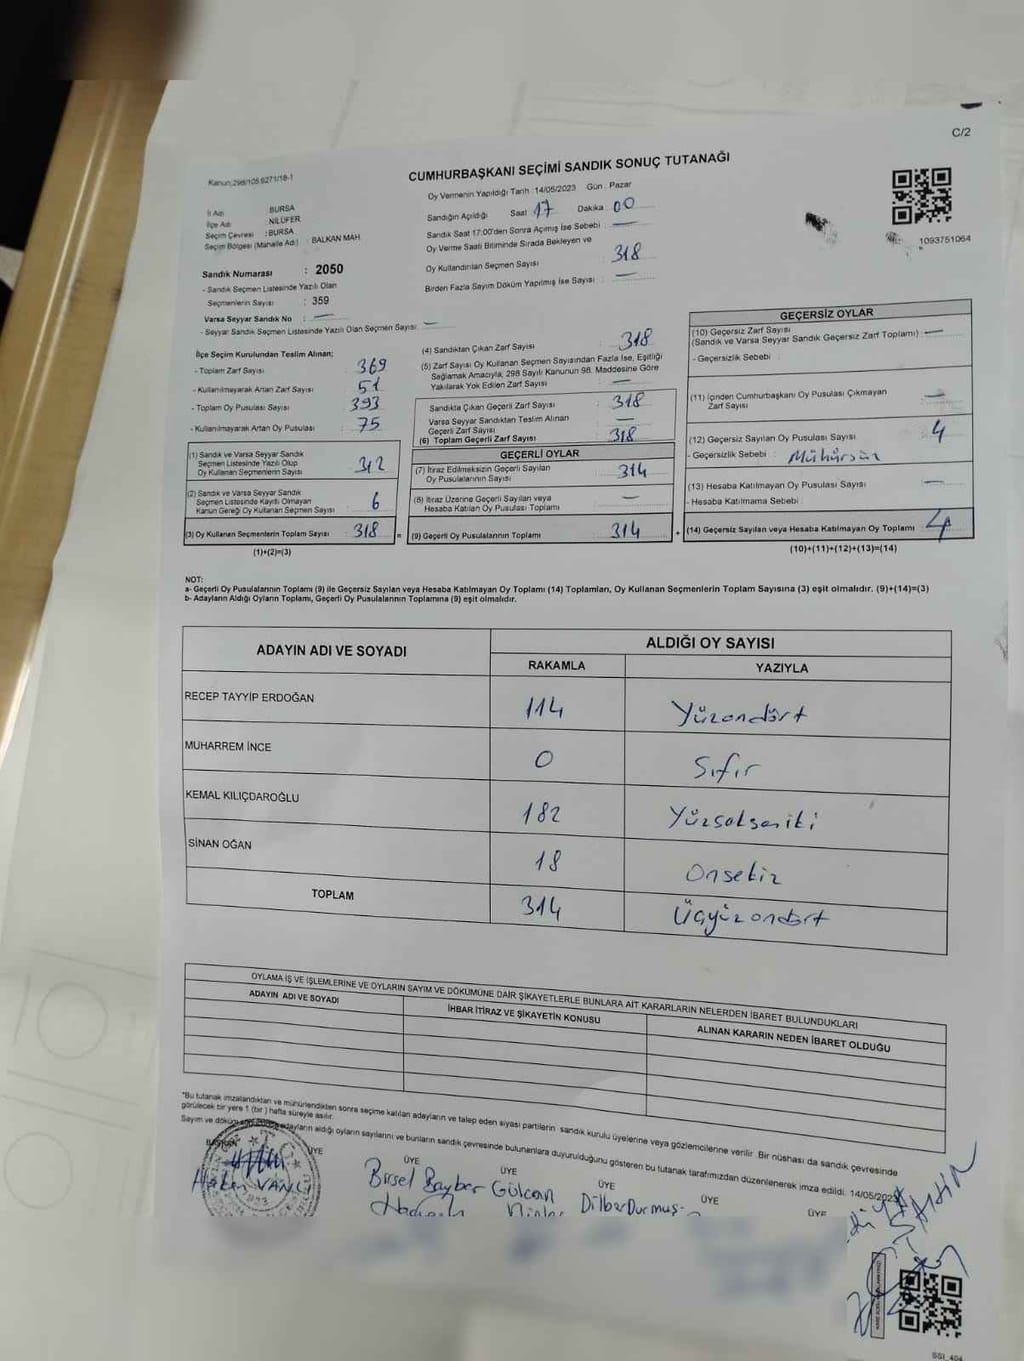 C/2
Kanun:298/105 6271/18-1
CUMHURBAŞKANI SEÇİMİ SANDIK SONUÇ TUTANAĞI
Oy Vermenin Yapıldığı Tarih :14/05/2023 Gün : Pazar
Sandığın Açıldığı Saat 17 Dakika : 00
Sandık Saat 17:00'den Sonra Açılmış İse Sebebi : —
Oy Verme Saati Bitiminde Sırada Bekleyen ve
Oy Kullandırılan Seçmen Sayısı : 318
Birden Fazla Sayım Döküm Yapılmış İse Sayısı : —
1093751064
İl Adı : BURSA
İlçe Adı : NİLÜFER
Seçim Çevresi : BURSA
Seçim Bölgesi (Mahalle Adı) : BALKAN MAH.
Sandık Numarası : 2050
- Sandık Seçmen Listesinde Yazılı Olan
Seçmenlerin Sayısı : 359
Varsa Seyyar Sandık No : —
- Seyyar Sandık Seçmen Listesinde Yazılı Olan Seçmen Sayısı : —
İlçe Seçim Kurulundan Teslim Alınan;
- Toplam Zarf Sayısı : 369
- Kullanılmayarak Artan Zarf Sayısı : 51
- Toplam Oy Pusulası Sayısı : 393
- Kullanılmayarak Artan Oy Pusulası : 75
(1) Sandık ve Varsa Seyyar Sandık
Seçmen Listesinde Yazılı Olup
Oy Kullanan Seçmenlerin Sayısı : 312
(2) Sandık ve Varsa Seyyar Sandık
Seçmen Listesinde Kayıtlı Olmayan
Kanun Gereği Oy Kullanan Seçmen Sayısı : 6
(3) Oy Kullanan Seçmenlerin Toplam Sayısı : 318
(1)+(2)=(3)
(4) Sandıktan Çıkan Zarf Sayısı : 318
(5) Zarf Sayısı Oy Kullanan Seçmen Sayısından Fazla İse, Eşitliği
Sağlamak Amacıyla, 298 Sayılı Kanunun 98. Maddesine Göre
Yakılarak Yok Edilen Zarf Sayısı : —
Sandıkta Çıkan Geçerli Zarf Sayısı : 318
Varsa Seyyar Sandıktan Teslim Alınan
Geçerli Zarf Sayısı :
(6) Toplam Geçerli Zarf Sayısı : 318
GEÇERLİ OYLAR
(7) İtiraz Edilmeksizin Geçerli Sayılan
Oy Pusulalarının Sayısı : 314
(8) İtiraz Üzerine Geçerli Sayılan veya
Hesaba Katılan Oy Pusulası Toplamı : —
= (9) Geçerli Oy Pusulalarının Toplamı : 314
GEÇERSİZ OYLAR
(10) Geçersiz Zarf Sayısı
(Sandık ve Varsa Seyyar Sandık Geçersiz Zarf Toplamı) : —
- Geçersizlik Sebebi :
(11) İçinden Cumhurbaşkanı Oy Pusulası Çıkmayan
Zarf Sayısı : —
(12) Geçersiz Sayılan Oy Pusulası Sayısı : 4
- Geçersizlik Sebebi : Mühürsüz
(13) Hesaba Katılmayan Oy Pusulası Sayısı : —
- Hesaba Katılmama Sebebi :
+ (14) Geçersiz Sayılan veya Hesaba Katılmayan Oy Toplamı : 4
(10)+(11)+(12)+(13)=(14)
NOT:
a- Geçerli Oy Pusulalarının Toplamı (9) ile Geçersiz Sayılan veya Hesaba Katılmayan Oy Toplamı (14) Toplamları, Oy Kullanan Seçmenlerin Toplam Sayısına (3) eşit olmalıdır. (9)+(14)=(3)
b- Adayların Aldığı Oyların Toplamı, Geçerli Oy Pusulalarının Toplamına (9) eşit olmalıdır.
ADAYIN ADI VE SOYADI ALDIĞI OY SAYISI
RAKAMLA YAZIYLA
RECEP TAYYİP ERDOĞAN 114 Yüzondört
MUHARREM İNCE 0 Sıfır
KEMAL KILIÇDAROĞLU 182 Yüzsekseniki
SİNAN OĞAN 18 Onsekiz
TOPLAM 314 Üçyüzondört
OYLAMA İŞ VE İŞLEMLERİNE VE OYLARIN SAYIM VE DÖKÜMÜNE DAİR ŞİKAYETLERLE BUNLARA AİT KARARLARIN NELERDEN İBARET BULUNDUKLARI
ADAYIN ADI VE SOYADI İHBAR İTİRAZ VE ŞİKAYETİN KONUSU ALINAN KARARIN NEDEN İBARET OLDUĞU
*Bu tutanak imzalandıktan ve mühürlendikten sonra seçime katılan adayların ve talep eden siyasi partilerin sandık kurulu üyelerine veya gözlemcilerine verilir. Bir nüshası da sandık çevresinde
görülecek bir yere 1 (bir) hafta süreyle asılır.
Sayım ve döküm adayların aldığı oyların sayılarını ve bunların sandık çevresinde bulunanlara duyurulduğunu gösteren bu tutanak tarafımızdan düzenlenerek imza edildi. 14/05/2023
BAŞKAN ÜYE ÜYE ÜYE ÜYE ÜYE ÜYE
Hakan VANCI Birsel Bayber Gülcan Dilber Durmuş
ŞAHİN